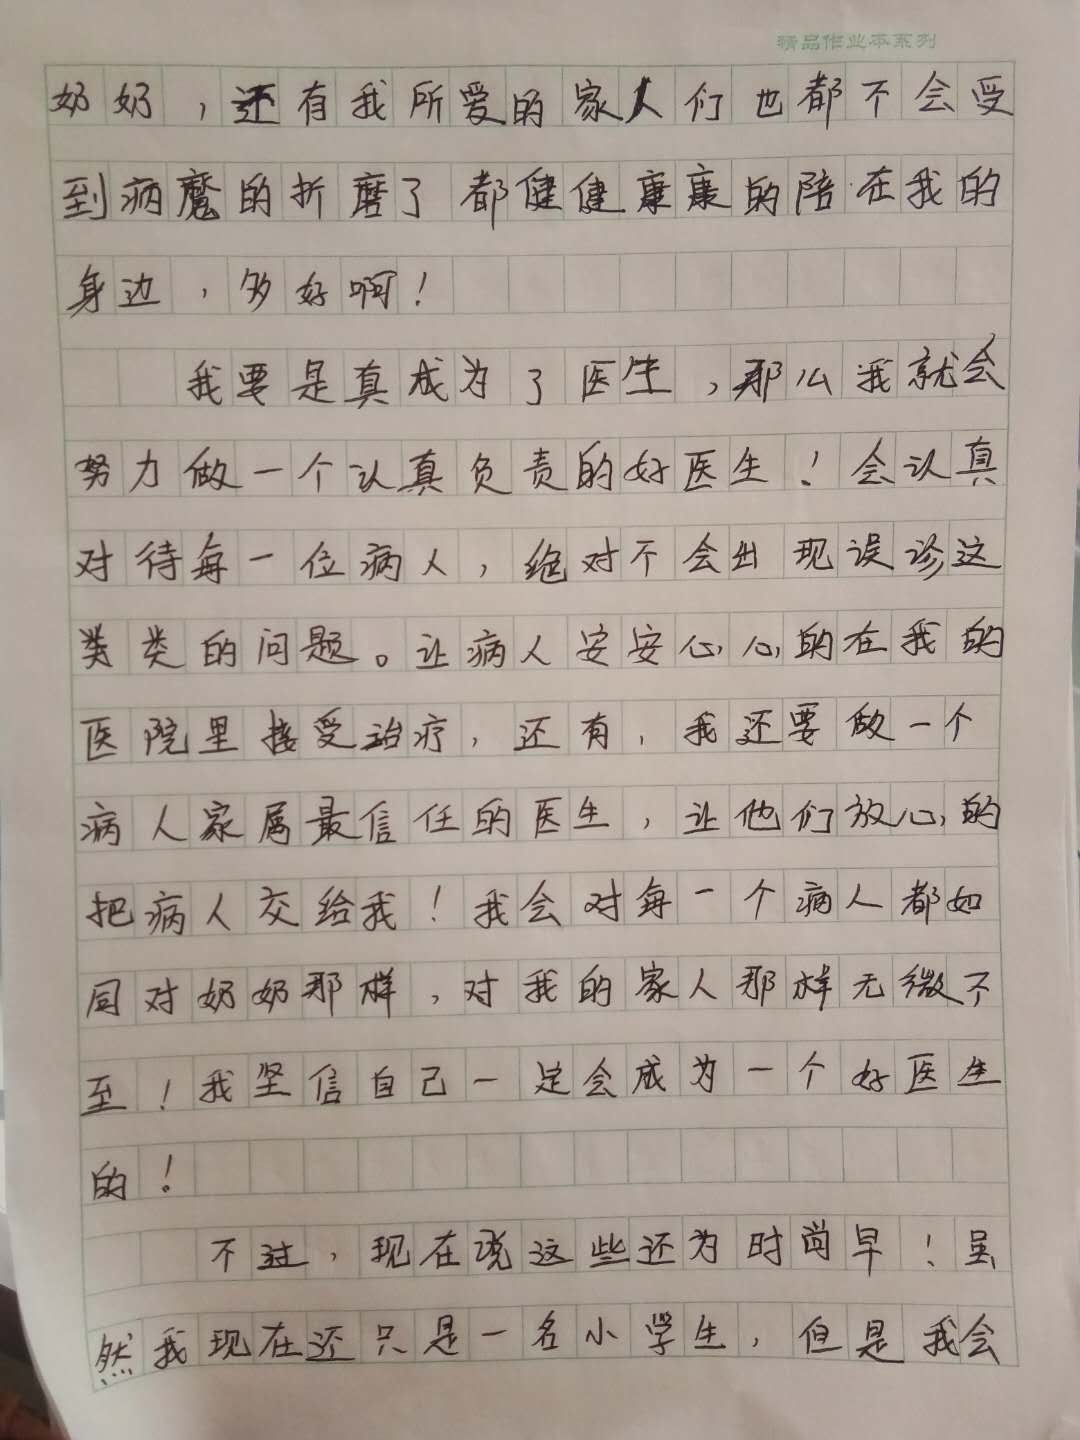 精品作业本系列
奶奶，还有我所爱的家人们也都不会受
到病魔的折磨了都健健康康的陪在我的
身边，多好啊！
我要是真成为了医生，那么我就会
努力做一个认真负责的好医生！会认真
对待每一位病人，绝对不会出现误诊这
类类的问题。让病人安安心心的在我的
医院里接受治疗，还有，我还要做一个
病人家属最信任的医生，让他们放心的
把病人交给我！我会对每一个病人都如
同对奶奶那样，对我的家人那样无微不
至！我坚信自己一定会成为一个好医生
的！
不过，现在说这些还为时尚早！虽
然我现在还只是一名小学生，但是我会